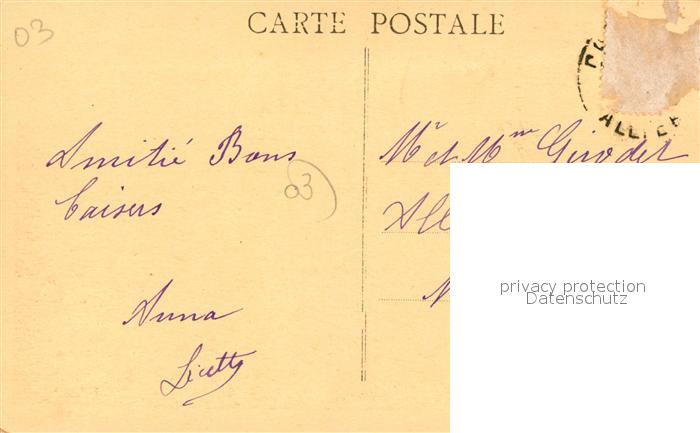 03
CARTE POSTALE
ALLIER
Amitié Bons
baisers
03
Anna
Mr et Mme Girodet
All
privacy protection
Datenschutz